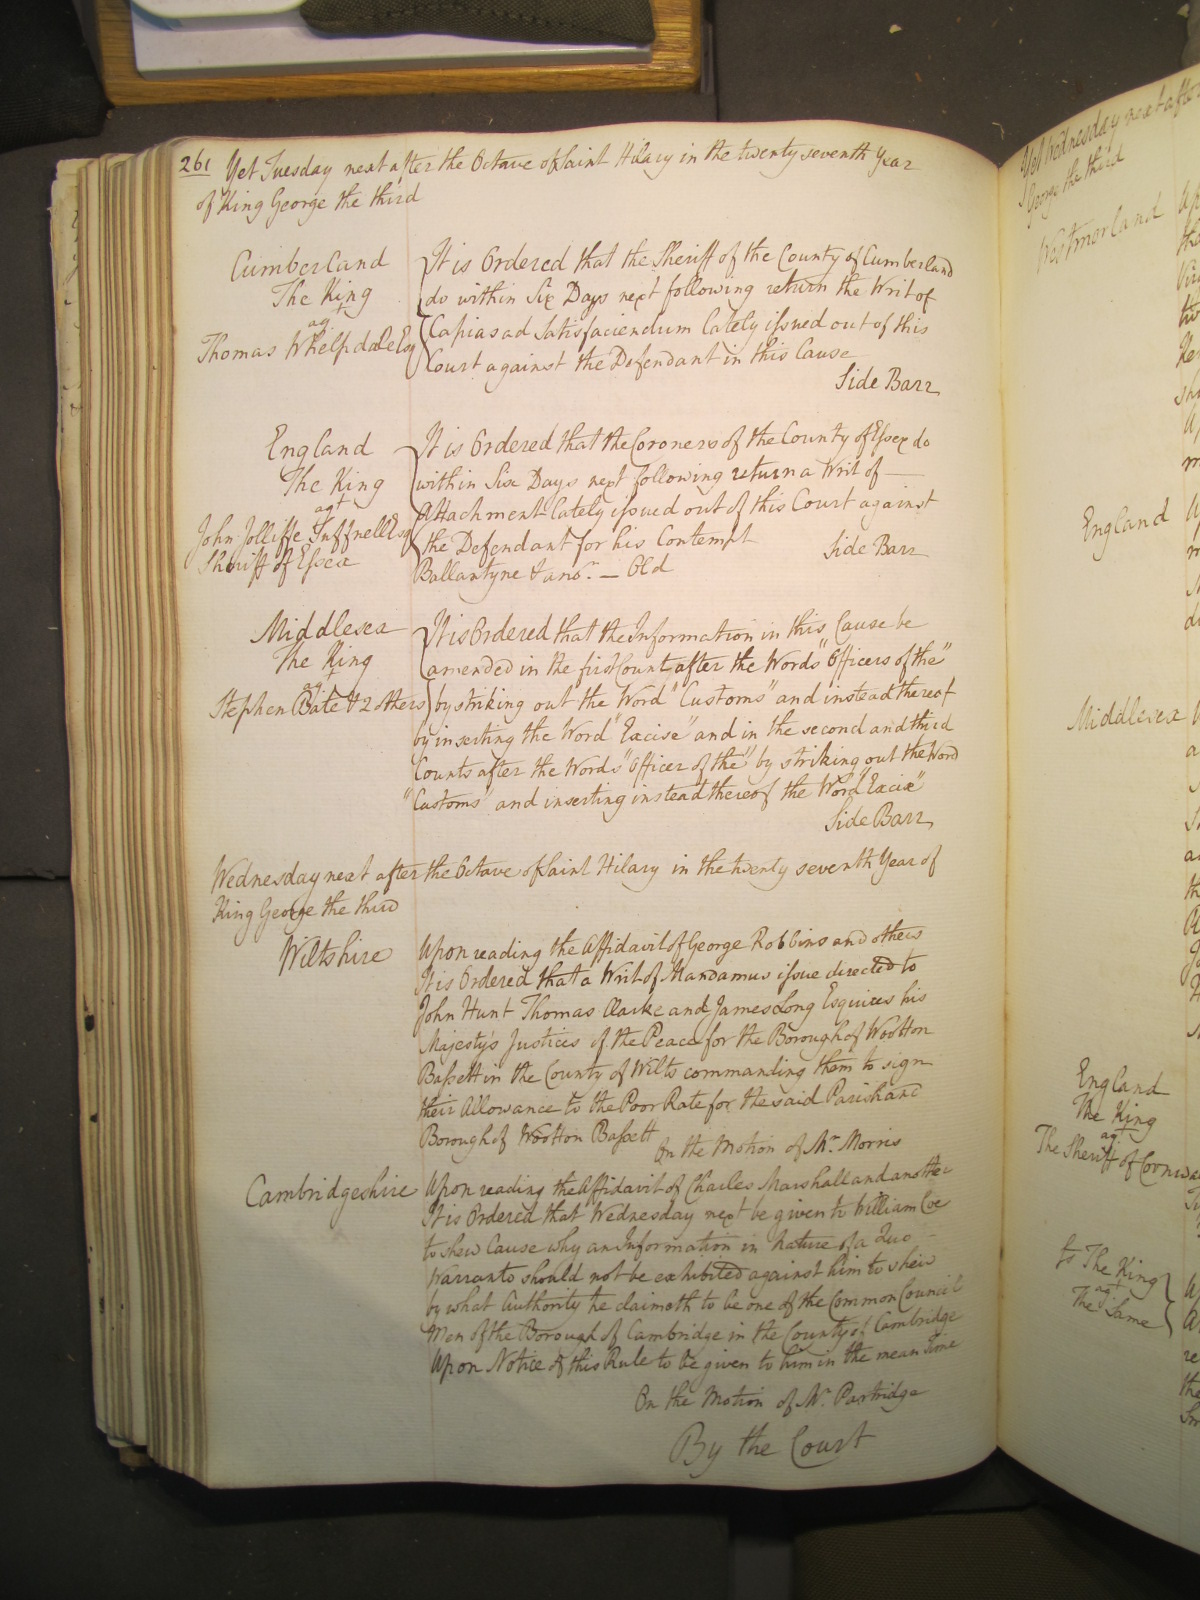 261 Yet Tuesday next after the Octave of Saint Hilary in the twenty seventh Year
of King George the third
Cumberland
The King
agt
Thomas Whelpdale Esq
It is Ordered that the Sheriff of the County of Cumberland
do within Six Days next following return the Writ of
Capias ad Satisfaciendum lately issued out of this
Court against the Defendant in this Cause
Side Barr
England
The King
agt
John Jolliffe Tuffnell Esq
Sheriff of Essex
It is Ordered that the Coroners of the County of Essex do
within Six Days next following return a Writ of
Attachment lately issued out of this Court against
the Defendant for his Contempt
Side Barr
Ballantyne & anor. — Old
Middlesex
The King
agt
Stephen Bate & 2 others
It is Ordered that the Information in this Cause be
amended in the first Count after the Words "Officers of the"
by striking out the Word "Customs" and instead thereof
by inserting the Word "Excise" and in the second and third
Counts after the Words "Officer of the" by striking out the Word
"Customs" and inserting instead thereof the Word "Excise"
Side Barr
Wednesday next after the Octave of Saint Hilary in the twenty seventh Year of
King George the third
Wiltshire
Upon reading the Affidavit of George Robbins and others
It is Ordered that a Writ of Mandamus issue directed to
John Hunt Thomas Clarke and James Long Esquires his
Majesty's Justices of the Peace for the Borough of Wootton
Bassett in the County of Wilts commanding them to sign
their Allowance to the Poor Rate for the said Parish and
Borough of Wootton Bassett
On the Motion of Mr. Morris
Cambridgeshire
Upon reading the Affidavit of Charles Marshall and another
It is Ordered that Wednesday next be given to William Coe
to shew Cause why an Information in nature of a Quo
Warranto should not be exhibited against him to shew
by what Authority he claimeth to be one of the Common Council
Men of the Borough of Cambridge in the County of Cambridge
Upon Notice of this Rule to be given to him in the mean Time
On the Motion of Mr. Partridge
By the Court
Yet Wednesday next after
George the third
Westmorland
England
Middlesex
England
The King
agt
The Sheriff of Cornwall
The King
agt
The Same